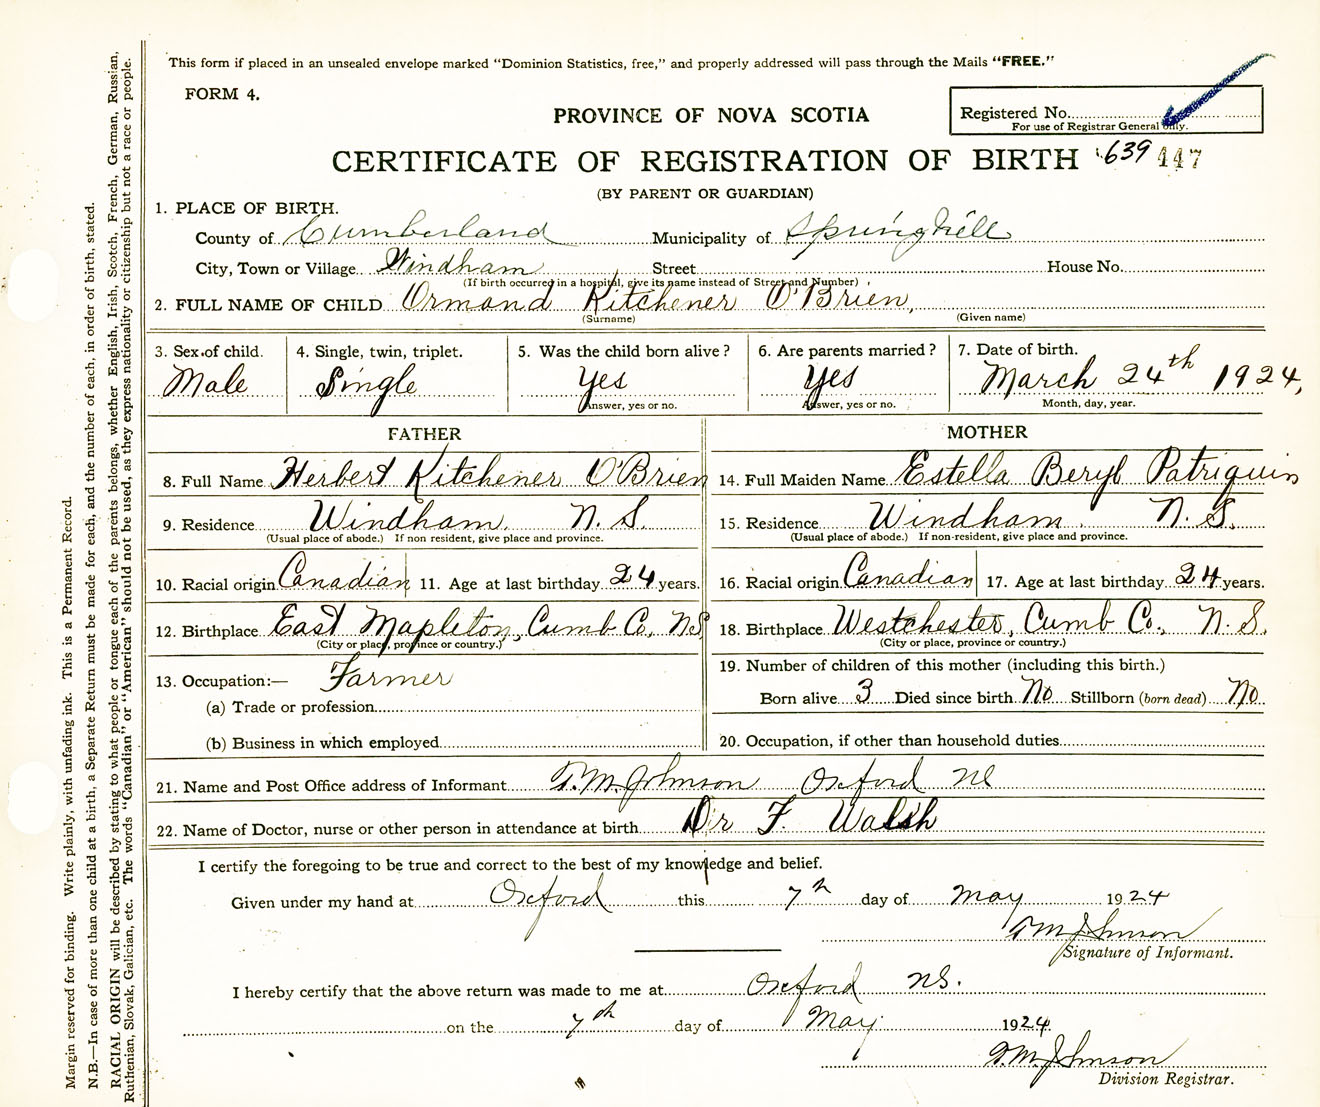 This form if placed in an unsealed envelope marked "Dominion Statistics, free," and properly addressed will pass through the Mails "FREE."
FORM 4.
PROVINCE OF NOVA SCOTIA
Registered No.
For use of Registrar General only.
CERTIFICATE OF REGISTRATION OF BIRTH 639 447
(BY PARENT OR GUARDIAN)
1. PLACE OF BIRTH.
County of Cumberland Municipality of Springhill
City, Town or Village Windham Street House No.
(If birth occurred in a hospital, give its name instead of Street and Number)
2. FULL NAME OF CHILD Ormand Kitchener O'Brien,
(Surname) (Given name)
3. Sex of child. 4. Single, twin, triplet. 5. Was the child born alive? 6. Are parents married? 7. Date of birth.
Male Single Yes Yes March 24th 1924,
Answer, yes or no. Answer, yes or no. Month, day, year.
FATHER MOTHER
8. Full Name Herbert Kitchener O'Brien 14. Full Maiden Name Estella Beryl Patriquin
9. Residence Windham, N. S. 15. Residence Windham, N. S.
(Usual place of abode.) If non resident, give place and province. (Usual place of abode.) If non-resident, give place and province.
10. Racial origin Canadian 11. Age at last birthday 24 years. 16. Racial origin Canadian 17. Age at last birthday 24 years.
12. Birthplace East Mapleton, Cumb Co, NS 18. Birthplace Westchester, Cumb Co., N. S.
(City or place, province or country.) (City or place, province or country.)
13. Occupation:— Farmer 19. Number of children of this mother (including this birth.)
(a) Trade or profession Born alive 3 Died since birth No Stillborn (born dead) No
(b) Business in which employed 20. Occupation, if other than household duties
21. Name and Post Office address of Informant T. M. Johnson Oxford NS
22. Name of Doctor, nurse or other person in attendance at birth Dr F. Walsh
I certify the foregoing to be true and correct to the best of my knowledge and belief.
Given under my hand at Oxford this 7th day of May 1924
T M Johnson
Signature of Informant.
I hereby certify that the above return was made to me at Oxford NS.
on the 7th day of May 1924
T. M. Johnson
Division Registrar.
Margin reserved for binding. Write plainly, with unfading ink. This is a Permanent Record.
N.B.—In case of more than one child at a birth, a Separate Return must be made for each, and the number of each, in order of birth, stated.
RACIAL ORIGIN will be described by stating to what people or tongue each of the parents belongs, whether English, Irish, Scotch, French, German, Russian,
Ruthenian, Slovak, Galician, etc. The words "Canadian" or "American" should not be used, as they express nationality or citizenship but not a race or people.